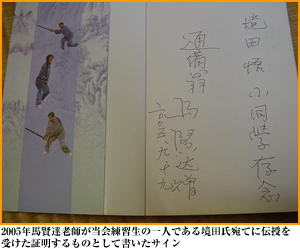 境田悟小同學存念
通備翁 馬賢达贈
二〇〇五、九、十九
2005年馬賢達老師が当会練習生の一人である境田氏宛てに伝授を
受けた証明するものとして書いたサイン